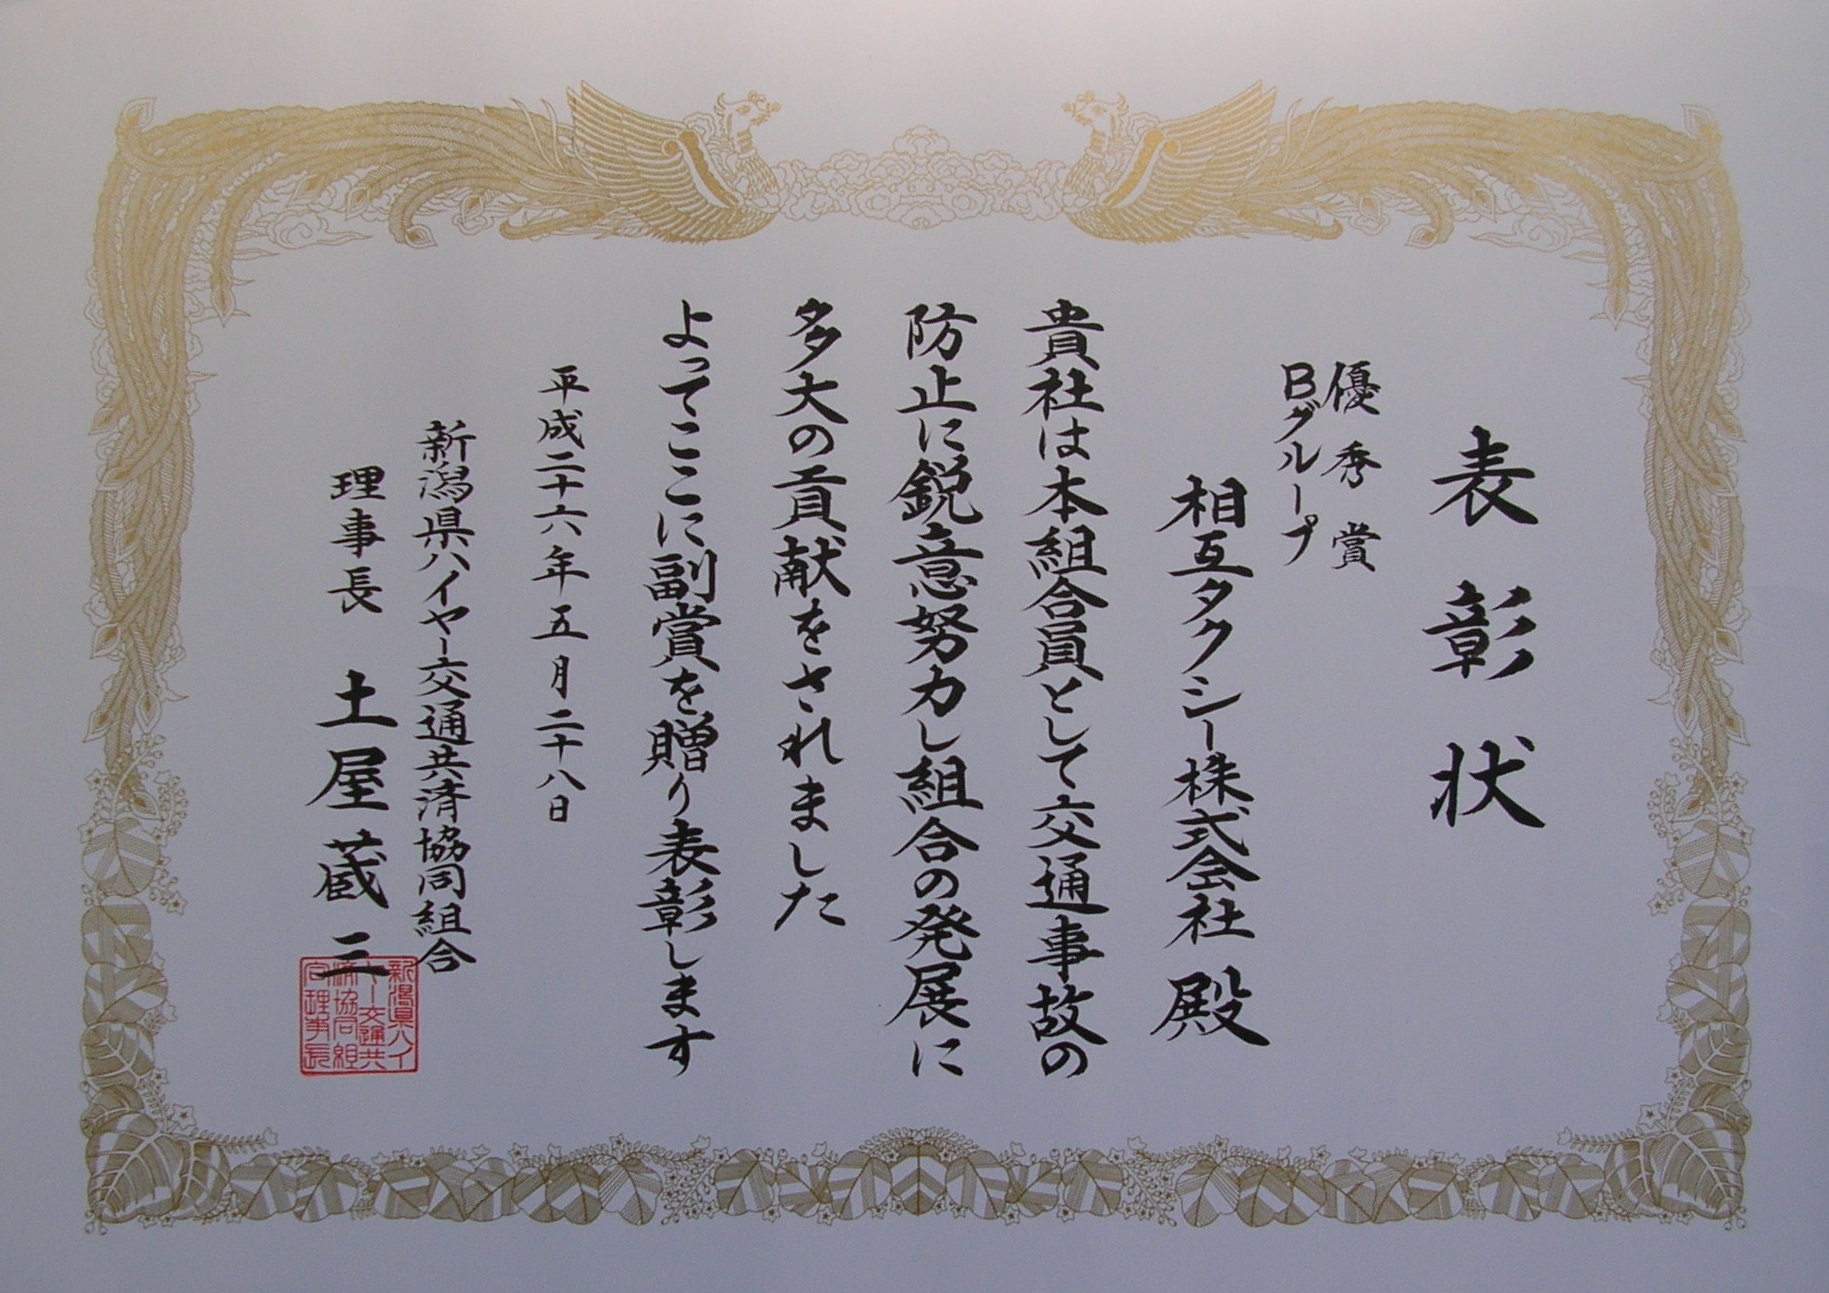 表彰状
優秀賞
Bグループ
相互タクシー株式会社 殿
貴社は本組合員として交通事故の
防止に鋭意努力し組合の発展に
多大の貢献をされました
よってここに副賞を贈り表彰します
平成二十六年五月二十八日
新潟県ハイヤー交通共済協同組合
理事長 土屋蔵三
新潟県ハイ
ヤー交通共
済協同組
合理事長